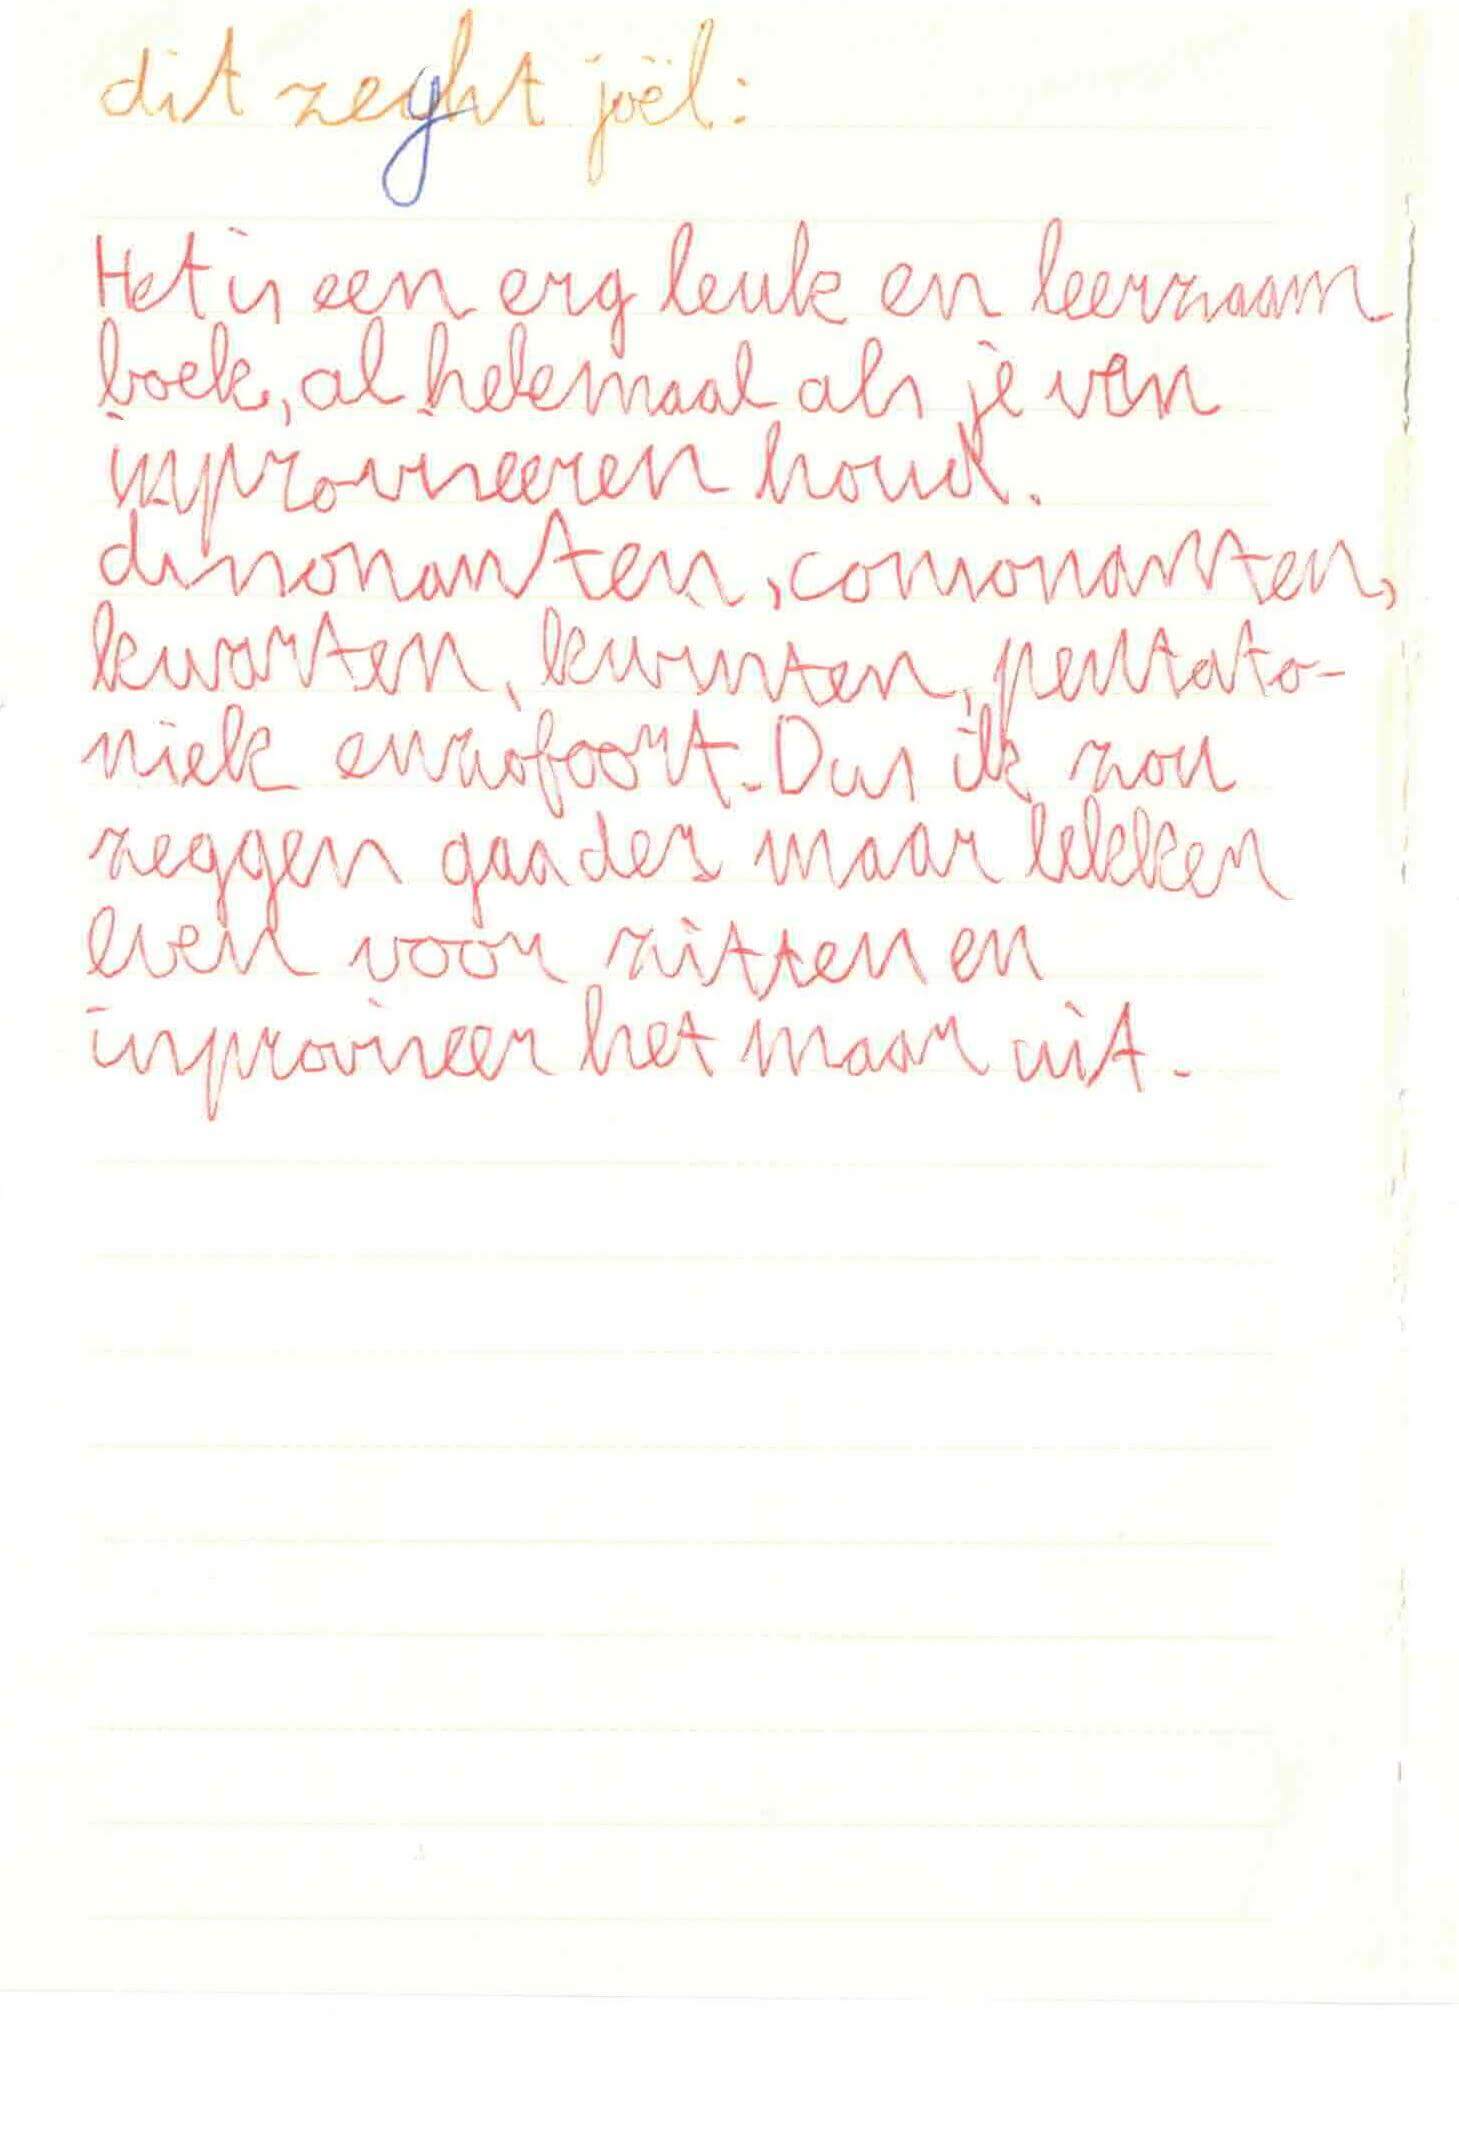 dit zeght joël:
Het is een erg leuk en leerzaam
boek, al helemaal als je van
inproviseeren houd.
dissonanten, consonanten,
kwarten, kwinten, pentato-
niek enzofoort. Dus ik zou
zeggen gaa der maar lekker
even voor zitten en
inproviseer het maar uit.